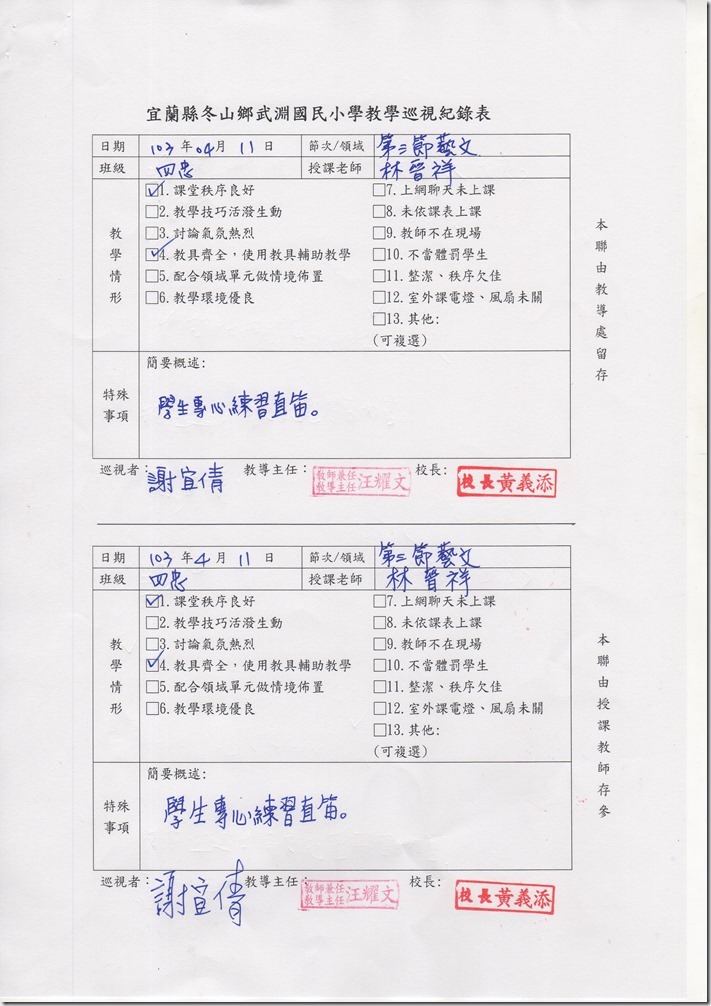 宜蘭縣冬山鄉武淵國民小學教學巡視紀錄表
日期 103 年 04 月 11 日 節次/領域 第三節藝文
班級 四忠 授課老師 林晉祥
教學情形
☑1.課堂秩序良好 □7.上網聊天未上課
□2.教學技巧活潑生動 □8.未依課表上課
□3.討論氣氛熱烈 □9.教師不在現場
☑4.教具齊全，使用教具輔助教學 □10.不當體罰學生
□5.配合領域單元做情境佈置 □11.整潔、秩序欠佳
□6.教學環境優良 □12.室外課電燈、風扇未關
□13.其他:
(可複選)
特殊事項
簡要概述:
學生專心練習直笛。
巡視者：謝宜倩 教導主任： 教師兼任教導主任 汪耀文 校長: 校長黃義添
本聯由教導處留存
日期 103 年 4 月 11 日 節次/領域 第三節藝文
班級 四忠 授課老師 林晉祥
教學情形
☑1.課堂秩序良好 □7.上網聊天未上課
□2.教學技巧活潑生動 □8.未依課表上課
□3.討論氣氛熱烈 □9.教師不在現場
☑4.教具齊全，使用教具輔助教學 □10.不當體罰學生
□5.配合領域單元做情境佈置 □11.整潔、秩序欠佳
□6.教學環境優良 □12.室外課電燈、風扇未關
□13.其他:
(可複選)
特殊事項
簡要概述:
學生專心練習直笛。
巡視者：謝宜倩 教導主任： 教師兼任教導主任 汪耀文 校長: 校長黃義添
本聯由授課教師存參